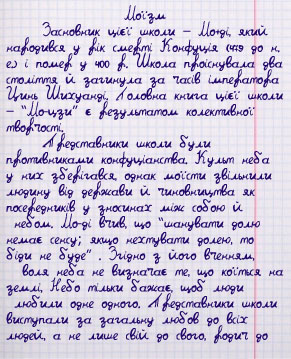 Моїзм
Засновник цієї школи – Мо-ді, який
народився у рік смерті Конфуція (479 до н.
е.) і помер у 400 р. Школа проіснувала два
століття й загинула за часів імператора
Цинь Шихуанді. Головна книга цієї школи
– "Мо-цзи" є результатом колективної
творчості.
Представники школи були
противниками конфуціанства. Культ неба
у них зберігався, однак моїсти звільнили
людину від держави й чиновництва як
посередників у зносинах між собою й
небом. Мо-ді вчив, що "шанувати долю
немає сенсу; якщо нехтувати долею, то
біди не буде". Згідно з його вченням,
воля неба не визначає те, що коїться на
землі. Небо тільки бажає, щоб люди
любили одне одного. Представники школи
виступали за загальну любов до всіх
людей, а не лише свій до свого, родич до